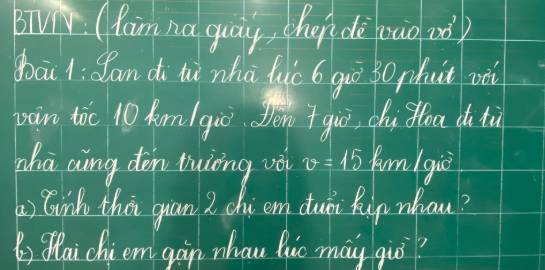 BTVN: (Làm ra giấy, chép đề vào vở)
Bài 1: Lan đi từ nhà lúc 6 giờ 30 phút với
vận tốc 10 km/giờ. Đến 7 giờ, chị Hoa đi từ
nhà cũng đến trường với v = 15 km/giờ
a) Tính thời gian 2 chị em đuổi kịp nhau?
b) Hai chị em gặp nhau lúc mấy giờ?